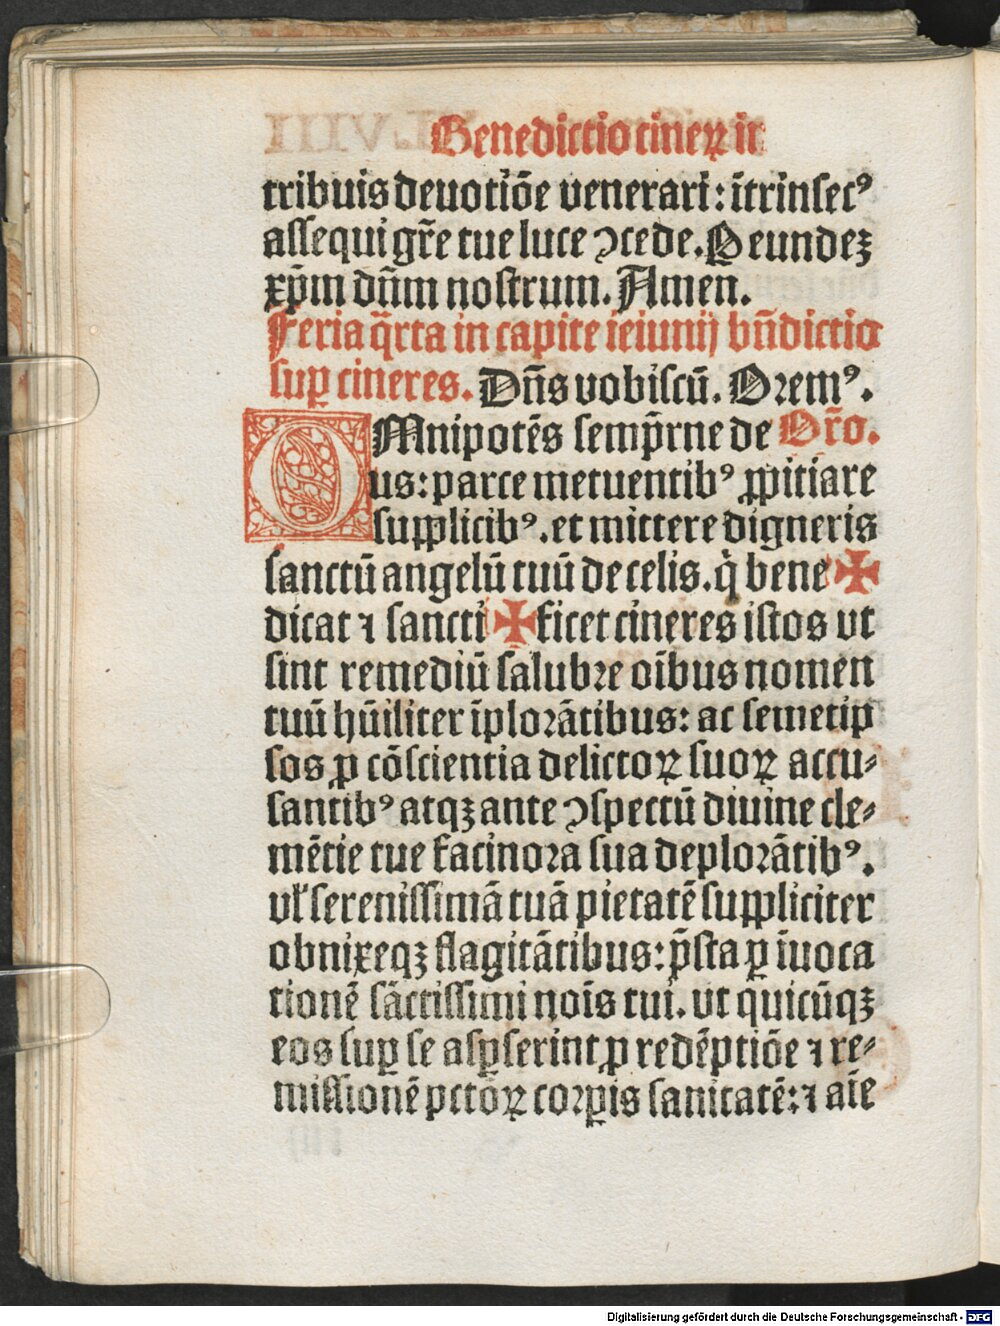 Benedictio cineꝝ in
tribuis deuotiōe venerari: ītrinsecꝰ
assequi gr̄e tue luce ↄcede. P eundeꝫ
xp̄m dn̄m nostrum. Amen.
Feria q̄rta in capite ieiunij bn̄dictio
suꝑ cineres. Dn̄s vobiscū. Oremꝰ.
OMnipotēs semp̄rne de Or̄o.
us: parce metuentibꝰ ꝓpitiare
supplicibꝰ. et mittere digneris
sanctū angelū tuū de celis. q̇ bene ✠
dicat ⁊ sancti ✠ ficet cineres istos vt
sint remediū salubre oībus nomen
tuū hūiliter īplorātibus: ac semetip
sos ꝓ cōscientia delictoꝝ suoꝝ accu⸗
santibꝰ atqꝫ ante ↄspectū diuine cle⸗
mētie tue facinora sua deplorātibꝰ.
vl̓ serenissimā tuā pietatē suppliciter
obnixeqꝫ flagitātibus: p̄sta ꝑ īuoca
tionē sāctissimi nōis tui. vt quicūqꝫ
eos suꝑ se asꝑserint ꝓ redēptiōe ⁊ re⸗
missionē pctōꝝ corꝑis sanitatē: ⁊ aīe
Digitalisierung gefördert durch die Deutsche Forschungsgemeinschaft - DFG